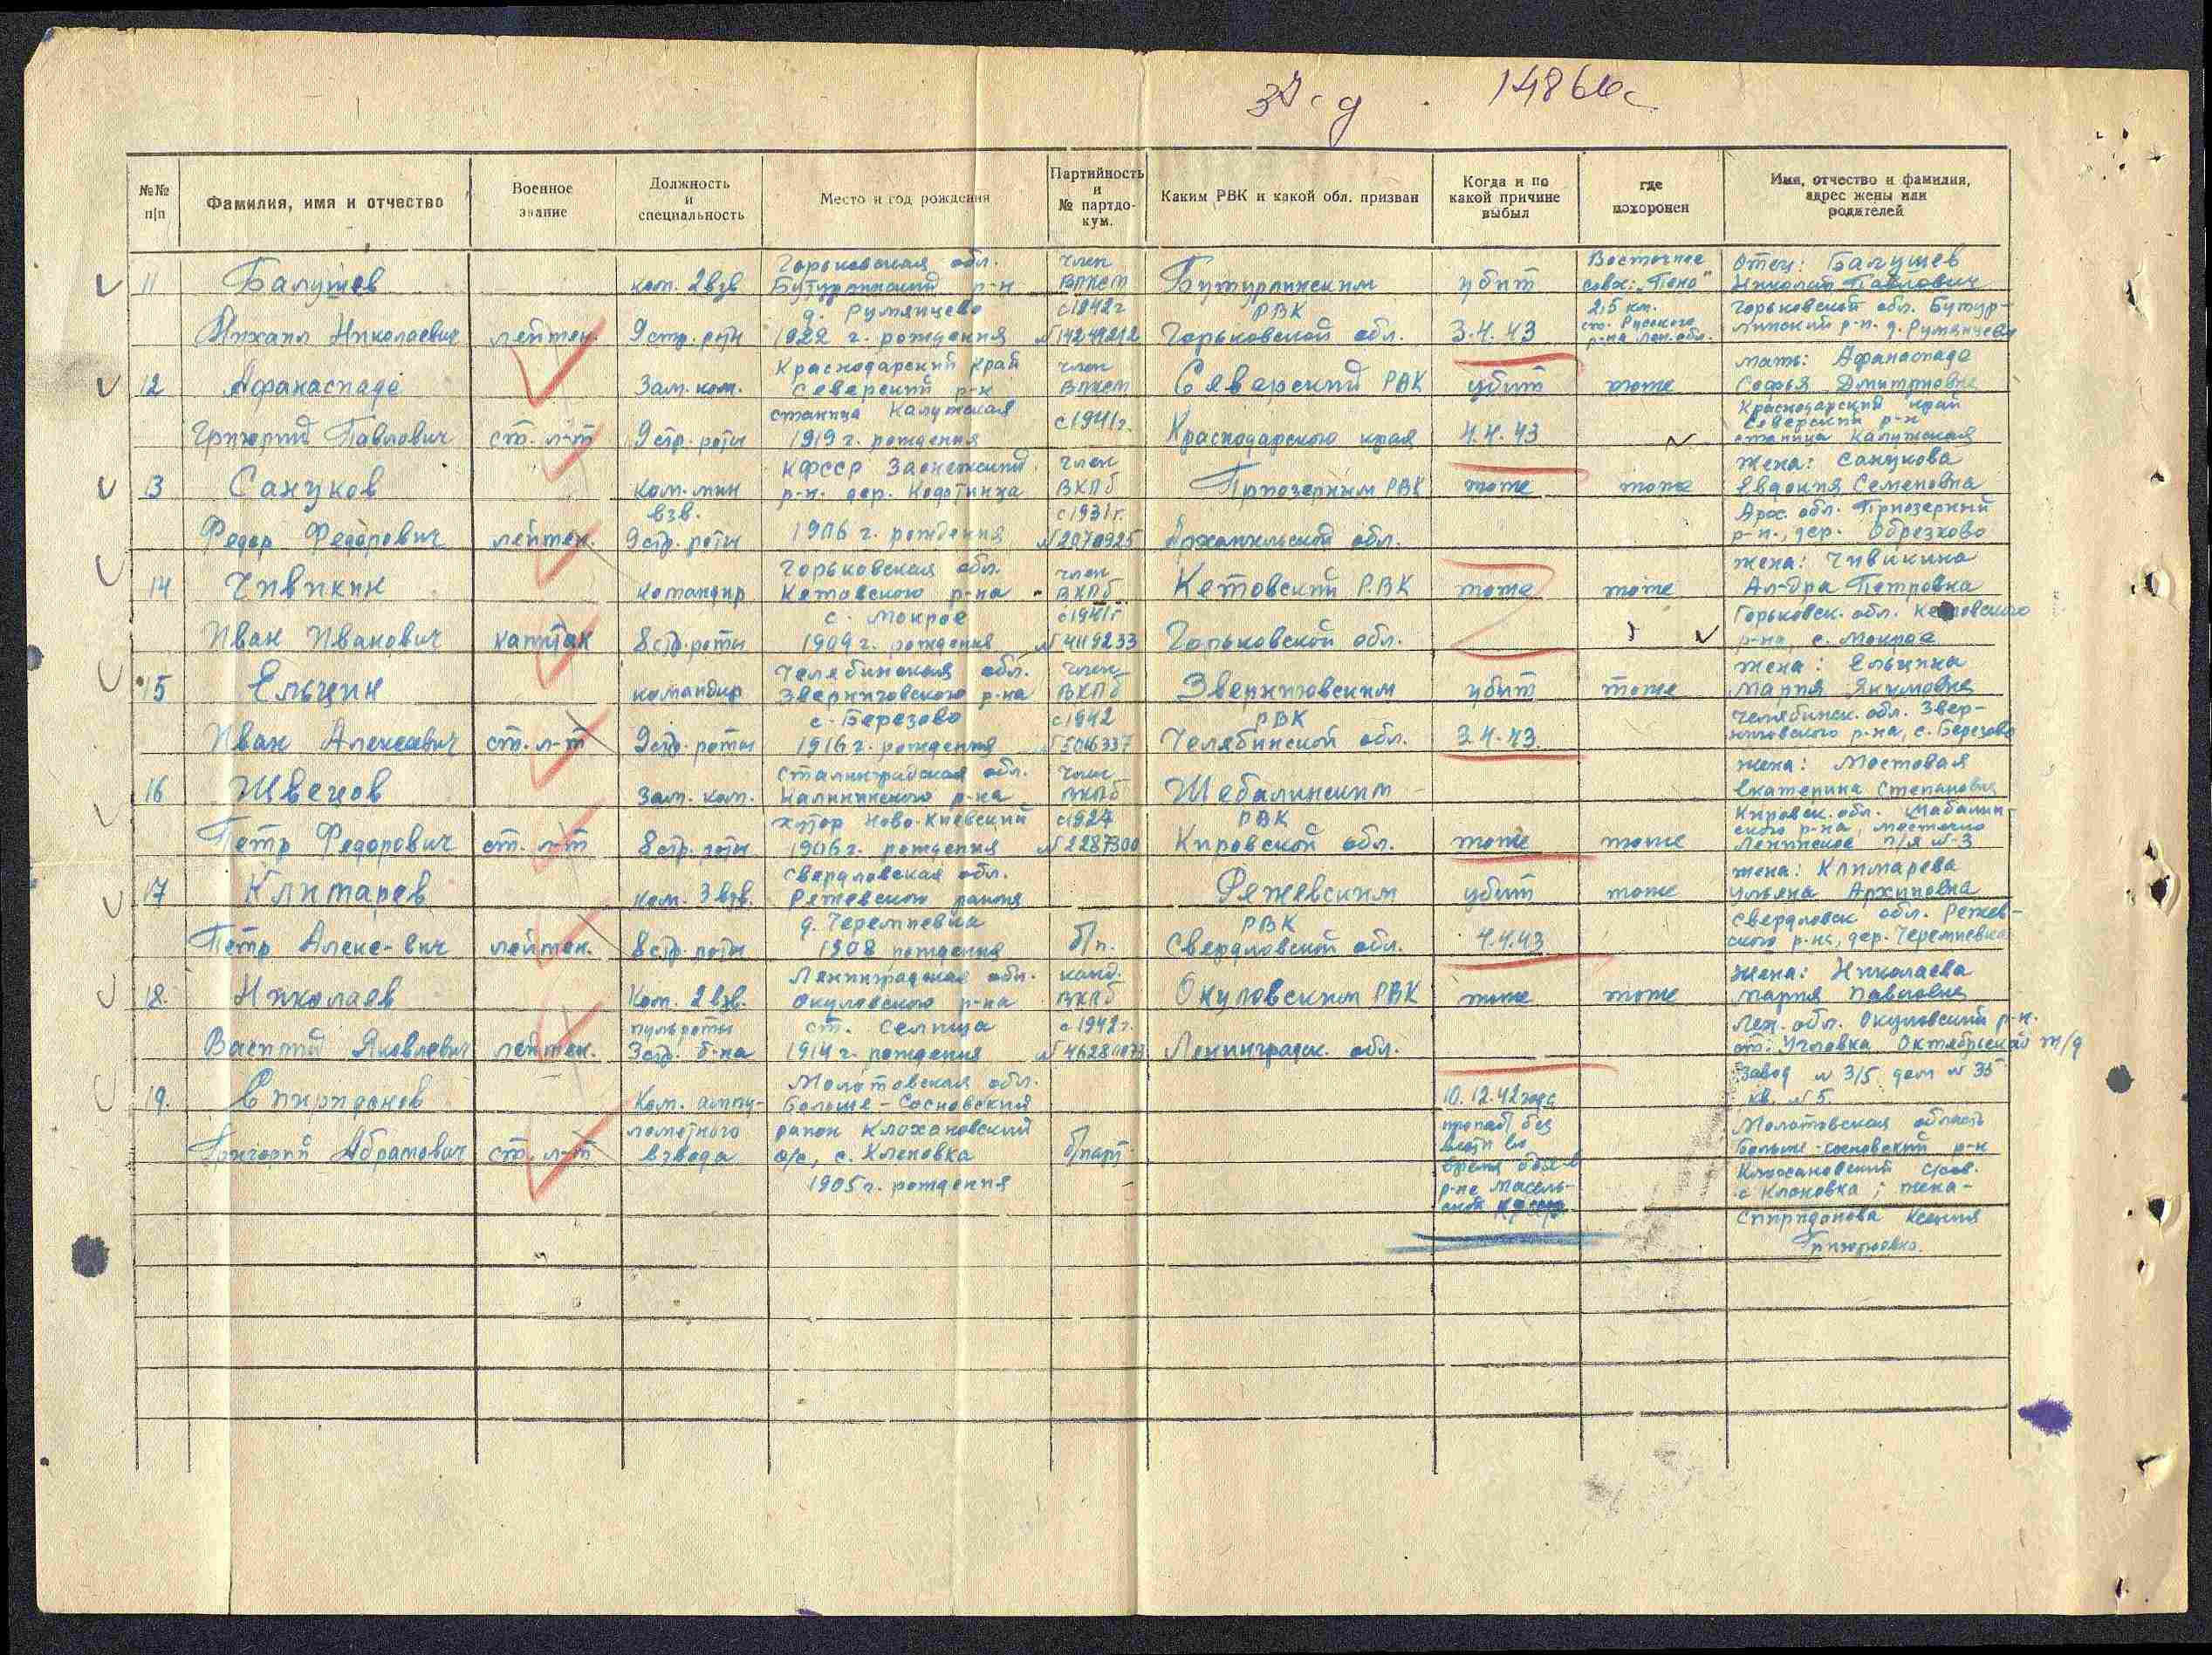 37 сд . 1486сс
№№ п|п
Фамилия, имя и отчество
Военное звание
Должность и специальность
Место и год рождения
Партийность и № партдо-кум.
Каким РВК и какой обл. призван
Когда и по какой причине выбыл
где похоронен
Имя, отчество и фамилия, адрес жены или родителей
11
Балушев
Михаил Николаевич
лейтен.
ком. 2 взв
9 стр. роты
Горьковская обл.
Бутурлинский р-н
д. Румянцево
1922 г. рождения
член
ВЛКСМ
с 1942 г
№ 14249212
Бутурлинским
РВК
Горьковской обл.
убит
3.4.43
Восточнее
2,5 км.
Отец: Балушев
Николай Павлович
Горьковской обл. Бутур-
линский р-н. д. Румянцево
12
Афанаспаде
Григорий Павлович
ст. л-т
Зам. ком.
9 стр. роты
Краснодарский край
Северский р-н
станица Калужская
1919 г. рождения
член
ВЛКСМ
с 1941 г.
Северский РВК
Краснодарского края
убит
4.4.43
тоже
мать: Афанаспаде
Софья Дмитриевна
Краснодарский край
Северский р-н
станица Калужская
13
Сануков
Федор Федорович
лейтен.
Ком. мин
взв.
9 стр. роты
КФССР Заонежский
р-н. дер.
1906 г. рождения
член
ВКПб
с 1931 г.
№ 2070925
Приозерным РВК
Архангельской обл.
тоже
тоже
жена: Санукова
Евдокия Семеновна
Арх. обл. Приозерный
р-н., дер. Обрезково
14
Чивикин
Иван Иванович
капитан
командир
8 стр. роты
Горьковская обл.
Кетовского р-на
с. Мокрое
1909 г. рождения
член
ВКПб
с 1941 г
№ 4119233
Кетовский РВК
Горьковской обл.
тоже
тоже
жена: Чивикина
Ал-дра Петровна
Горьковск. обл. Кетовского
р-на, с. Мокрое
15
Ельцин
Иван Алексеевич
ст. л-т
командир
9 стр. роты
Челябинская обл.
Звериноговского р-на
с. Березово
1916 г. рождения
член
ВКПб
с 1942
№ 5016337
Звериноговским
РВК
Челябинской обл.
убит
3.4.43
тоже
жена: Ельцина
Мария Якимовна
Челябинск. обл. Звер-
ниговского р-на, с. Березово
16
Швецов
Петр Федорович
ст. л-т
Зам. ком.
8 стр. роты
Сталинградская обл.
Калининского р-на
хутор Ново-Киевский
1906 г. рождения
член
ВКПб
с 1927
№ 2287300
Шебалинским
РВК
Кировской обл.
тоже
тоже
жена: Мостовая
Екатерина Степановна
Кировск. обл. Шабалин-
ского р-на, местечко
Ленинское п/я № 3
17
Климарев
Петр Алекс-вич
лейтен.
ком. 3 взв.
8 стр. роты
Свердловская обл.
Режевского района
д. Черемневка
1908 рождения
б/п.
Режевским
РВК
Свердловской обл.
убит
4.4.43
тоже
жена: Климарева
Ульяна Архиповна
Свердловск. обл. Режев-
ского р-на, дер. Черемневка
18.
Николаев
Василий Яковлевич
лейтен.
Ком. 2 взв.
пульроты
3 стр. б-на
Ленинградская обл.
Окуловского р-на
ст. Селища
1914 г. рождения
канд.
ВКПб
с 1942 г.
Окуловским РВК
Ленинградск. обл.
тоже
тоже
жена: Николаева
Мария Павловна
Лен. обл. Окуловский р-н.
ст. Угловка Октябрьской ж/д
завод № 315 дом № 35
кв. № 5
19.
Спиридонов
Григорий Абрамович
ст. л-т
Ком. ампу-
ломётного
взвода
Молотовская обл.
Больше-Сосновский
район Клохановский
с/с, с. Кленовка
1905 г. рождения
б/парт
10.12.42 года
пропал без
вести во
время
р-не Масель-
ской КФССР
Молотовская область
Больше-сосновский р-н
Клохановский с/сов.
с Кленовка; жена-
Спиридонова Ксения
Григорьевна.